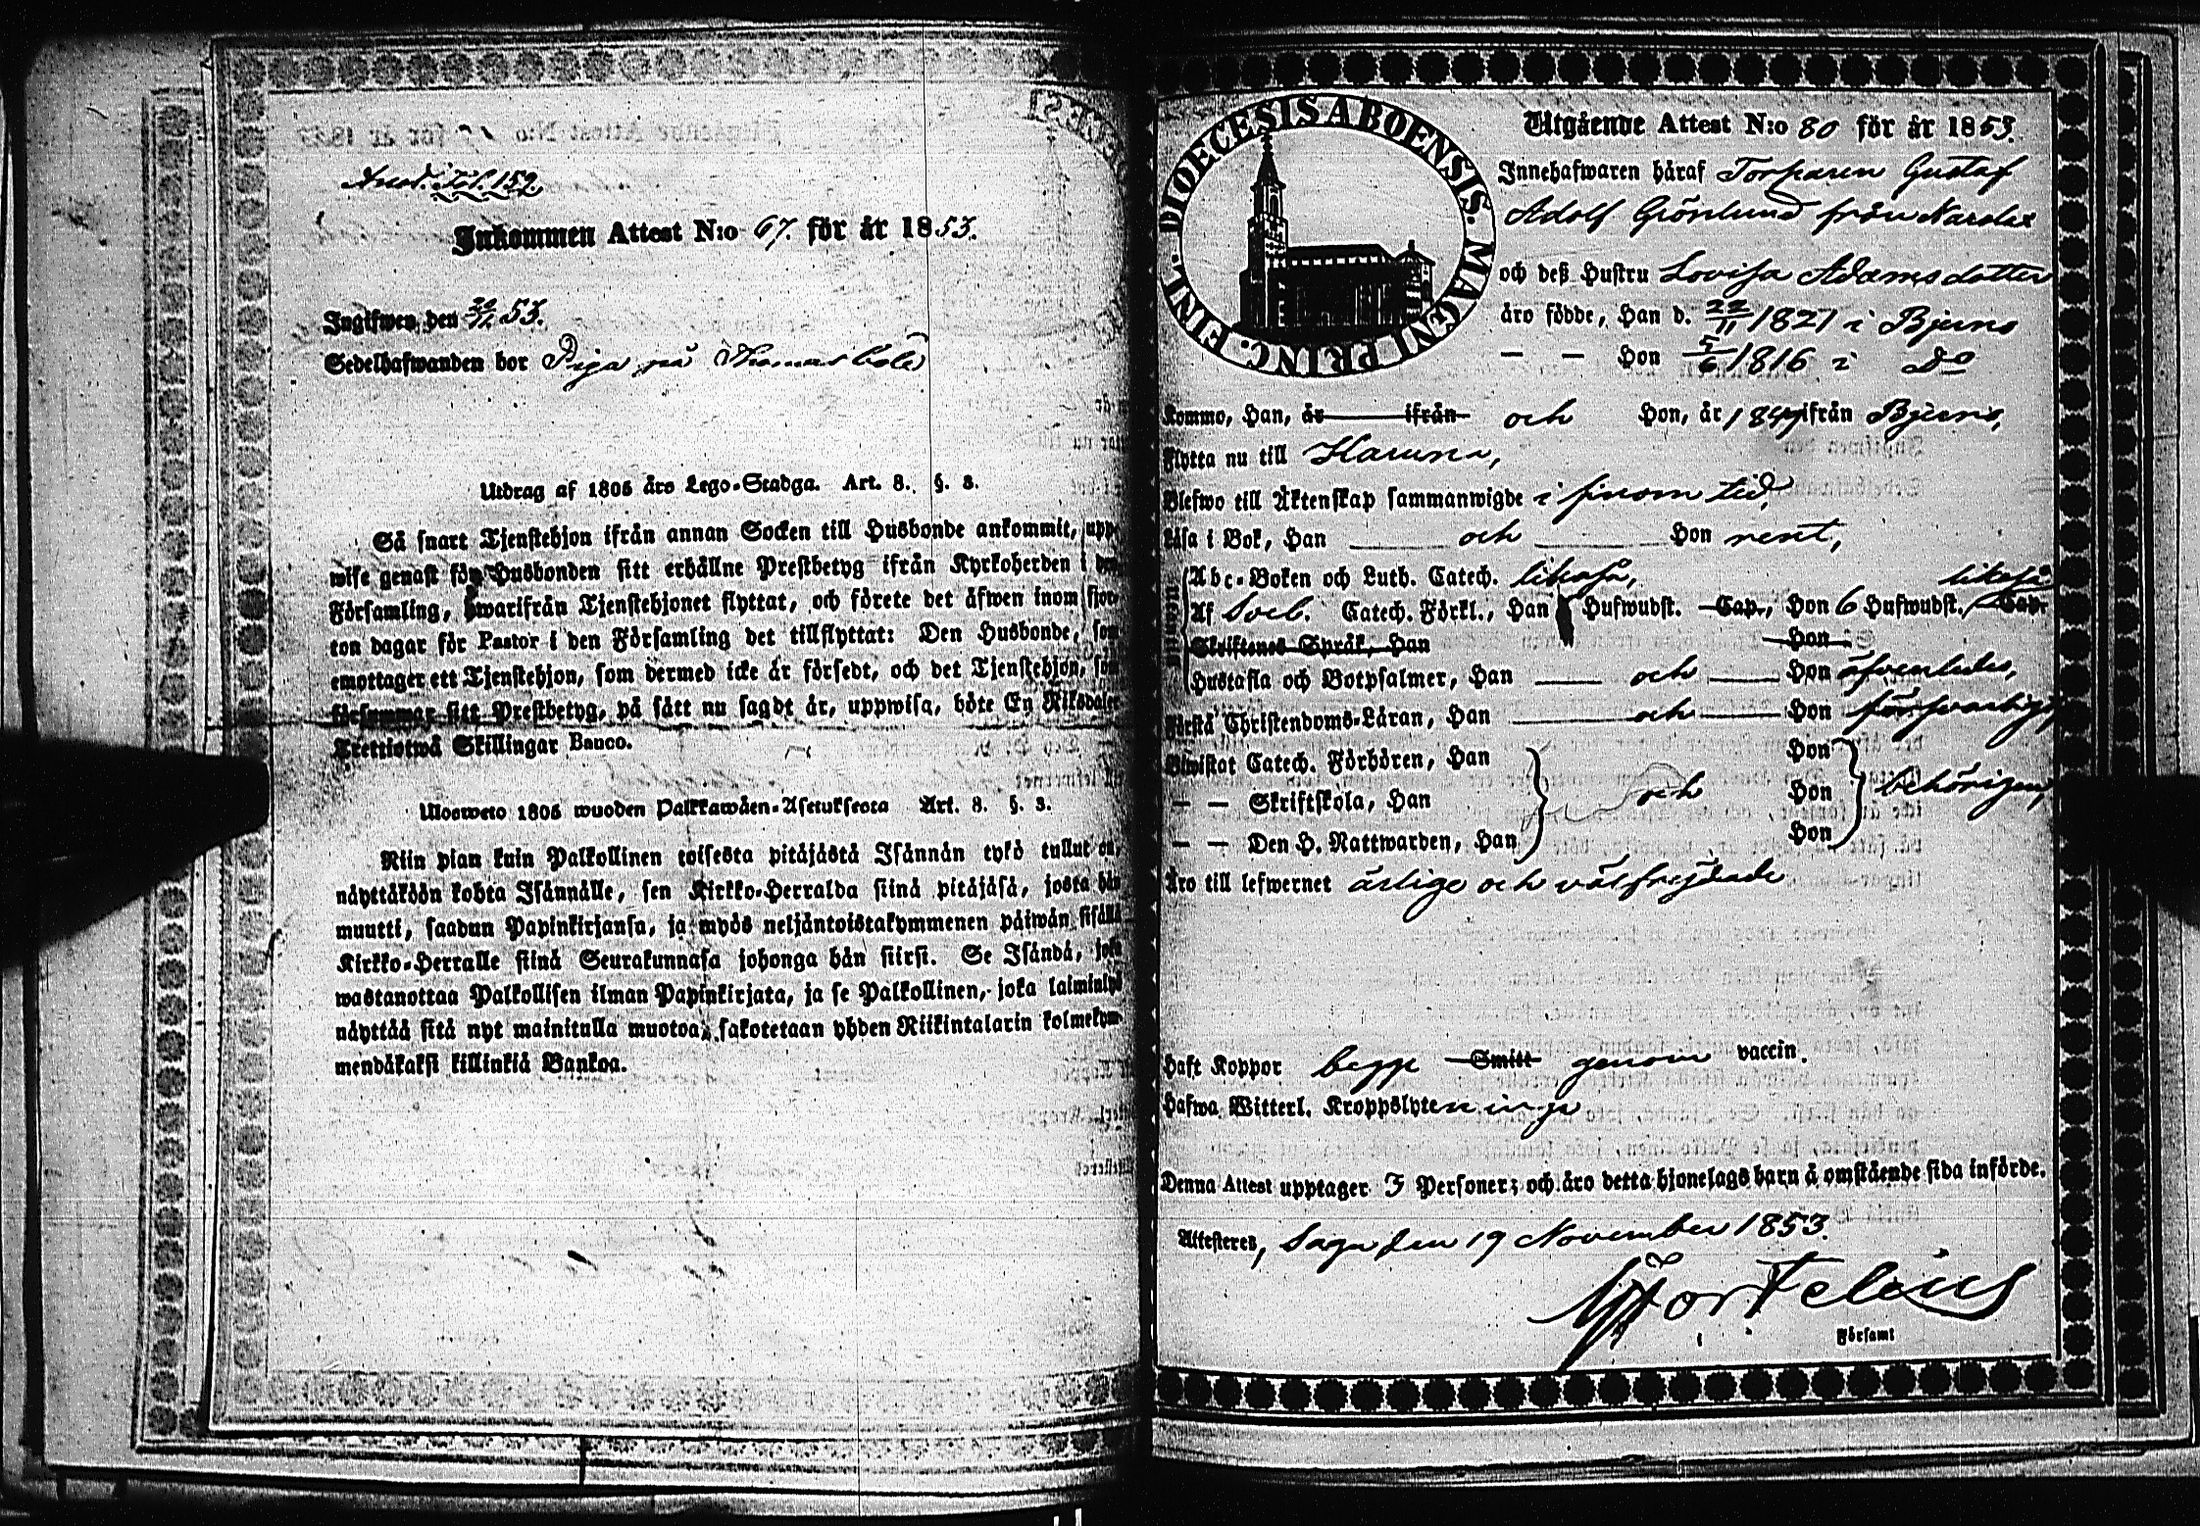 Anod. Fol. 152.
Inkommen Attest N:o 67. för år 1853.
Ingifwen den 53.
Sedelhafwanden bor Piga på Thomasböle
Utdrag af 1805 års Lego-Stadga. Art. 8. §. 3.
Så snart Tjenstehjon ifrån annan Socken till Husbonde ankommit, upp-
wise genast för Husbonden sitt erhållne Prestbetyg ifrån Kyrkoherden i den
Församling, hwarifrån Tjenstehjonet flyttat, och förete det äfwen inom fjor-
ton dagar för Pastor i den Församling det tillflyttat: Den Husbonde, som
emottager ett Tjenstehjon, som dermed icke är försedt, och det Tjenstehjon, som
försummar sitt Prestbetyg, på sått nu sagdt är, uppwisa, böte En Riksdaler
Trettiotwå Skillingar Banco.
Ulosweto 1805 wuoden Palkkawäen-Asetuksesta Art. 8. §. 3.
Niin pian kuin Palkollinen toisesta pitäjästä Isännän tykö tullut on,
näyttäköön kohta Isännälle, sen Kirkko-Herralda siinä pitäjäsä, josta hän
muutti, saadun Papinkirjansa, ja myös neljäntoistakymmenen päiwän sisällä
Kirkko-Herralle siinä Seurakunnasa johonga hän siirsi. Se Isändä, joka
wastanottaa Palkollisen ilman Papinkirjata, ja se Palkollinen, joka laiminlyö
näyttää sitä nyt mainitulla muotoa, sakotetaan yhden Riikintalarin kolmekym-
mendäkaksi killinkiä Bankoa.
DIOECESIS ABOENSIS. MAGNI PRINC. FINL.
Utgående Attest N:o 80 för år 1853.
Innehafwaren häraf Torparen Gustaf
Adolf Grönlund från
och deß Hustru Lovisa Adamsdotter
äro födde, Han d. 22/11 1821 i Bjerno
— — Hon 5/6 1816 i Do
Kommo, Han, år ifrån och Hon, år ifrån Bjerno,
Flytta nu till Karuna,
Blefwo till Äktenskap sammanwigde i tid,
Läsa i Bok, Han och Hon rent,
Abc-Boken och Luth. Catech. likaså,
likaså
Af Sveb. Catech. Förkl., Han Hufwudst. Cap., Hon 6 Hufwudst. Cap.
Skriftenes Språk, Han Hon
Hustafla och Botpsalmer, Han och Hon äfvenledes,
Förstå Christendoms-Läran, Han och Hon försvarligt,
Biwistat Catech. Förhören, Han Hon
— — Skriftskola, Han och Hon behörigen,
— — Den H. Nattwarden, Han Hon
Äro till lefwernet ärlige och välfrejdade
Haft Koppor begge Smitt genom vaccin.
Hafwa Witterl. Kroppslyten inga
Denna Attest upptager Personer; och äro detta hjonelags barn å omstående sida införde.
Attesteres, Sagu den 19 November 1853.
Hortelius
Församl